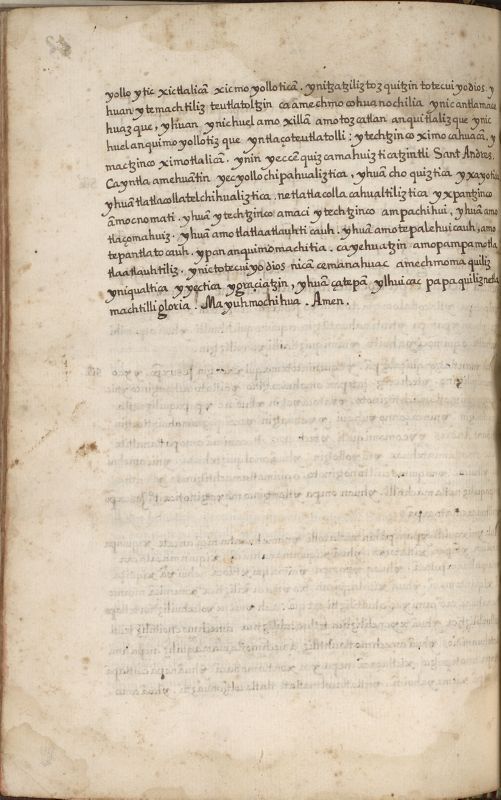 yollo ytic xictlalicā xicmo yolloticā. ynitzatziliztoz quitzin totecuiyo dios. y
huan ytemachtiliz teutlatoltzin ca amechmocohuanochilia ynic antlamace
huazque, yhuan ynic huel amo xillā amotozcatlan anquitlalizque ynic
huel anquimo yollotiz que yntlaçoteutlatolli: ytechtzinco ximocahuacā, y
mactzinco ximotlalicā. ynin yeccēquizcamahuizticatzintli Sant Andres.
Ca yntla amehuāntin yecyollochipahualiztica, yhuā choquiztica yxayotica
yhuā tlatlacollatelchihualiztica. netlatlacolla cahualtiliztica yxpantzinco
āmocnomati. yhuā ytechtzinco amaci ytechtzinco ampachihui, yhuā amo
tlaçomahuiz. yhuā amotlatlaatlauhticauh. yhuā amotepalehuicauh, amo
tepantlatocauh. ypan anquimomachitia. ca yehuatzin amopampa motla
tlaatlauhtiliz. ynic totecuiyo dios nicā cemanahuac amechmomaquiliz
yniqualtica yyectica ygraciatzin, yhuā çatepā ylhuicac papaquiliznetla
machtilli gloria. Ma yuh mochihua. Amen.